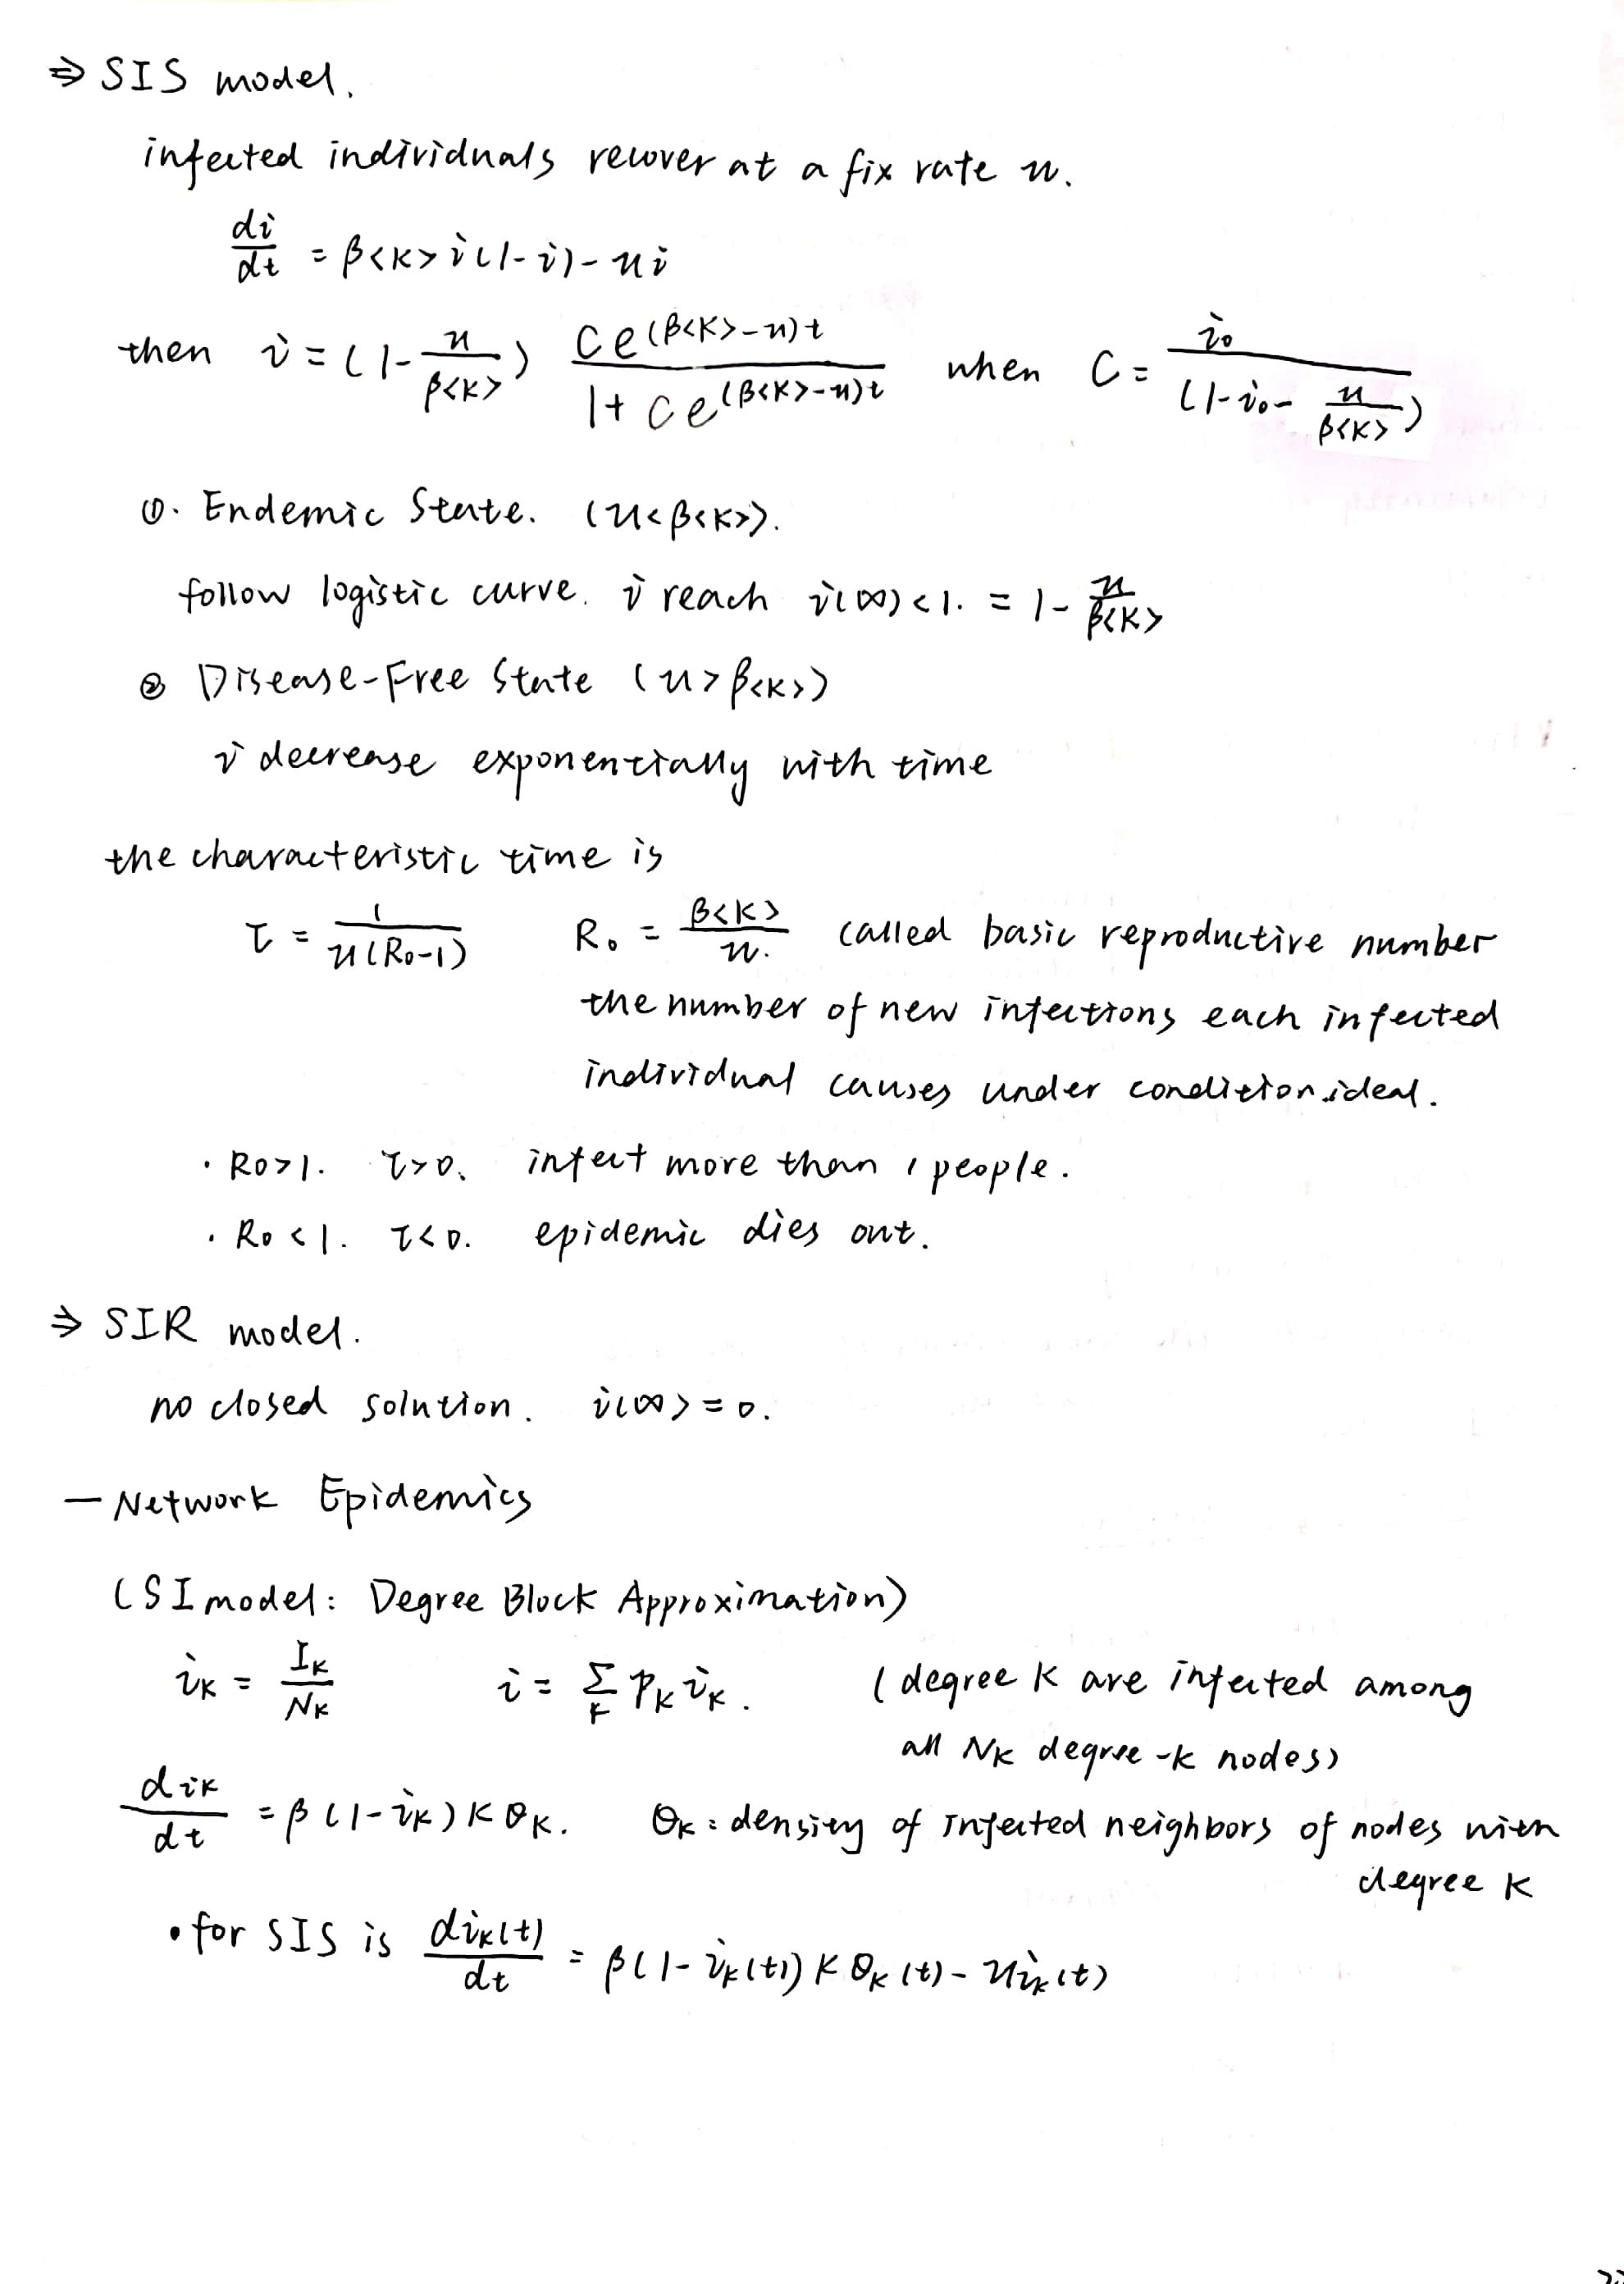 ⇒ SIS model.
infected individuals recover at a fix rate u.
di/dt = β<K> i(1-i) - ui
then i = (1 - u/β<K>) Ce^(β<K>-u)t / 1+Ce^(β<K>-u)t when C = i₀ / (1-i₀- u/β<K>)
①. Endemic State. (u<β<K>).
follow logistic curve. i reach i(∞)<1. = 1 - u/β<K>
② Disease-Free State (u>β<K>)
i decrease exponentially with time
the characteristic time is
τ = 1/u(R₀-1) R₀ = β<K>/u. called basic reproductive number
the number of new infections each infected
individual causes under condition ideal.
· R₀>1. τ>0. infect more than 1 people.
· R₀<1. τ<0. epidemic dies out.
⇒ SIR model.
no closed solution. i(∞) = 0.
— Network Epidemics
(SI model: Degree Block Approximation)
i_K = I_K/N_K i = Σ_K P_K i_K. (degree K are infected among
all N_K degree-k nodes)
di_K/dt = β(1-i_K) K θ_K. θ_K: density of infected neighbors of nodes with
degree K
• for SIS is di_K(t)/dt = β(1-i_K(t)) K θ_K(t) - u i_K(t)